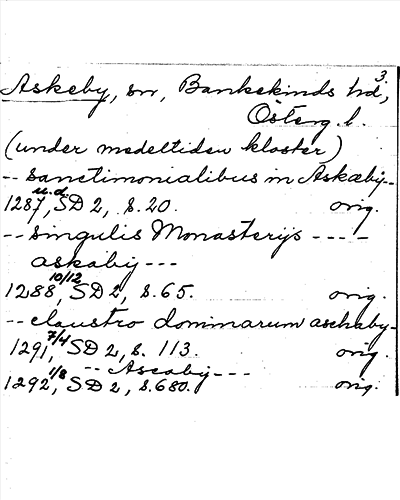 3.
Askeby, sn, Bankekinds hd,
Österg. l.
(under medeltiden kloster)
-- sanctimonialibus in Askæby--
1287, u.d. SD 2, s. 20. orig.
-- singulis Monasterijs ----
askabij ---
1288, 10/12 SD 2, s. 65. orig.
-- claustro dominarum aschaby-
1291, 7/4 SD 2, s. 113. orig.
-- Ascaby ---
1292, 1/8 SD 2, s. 680. orig.